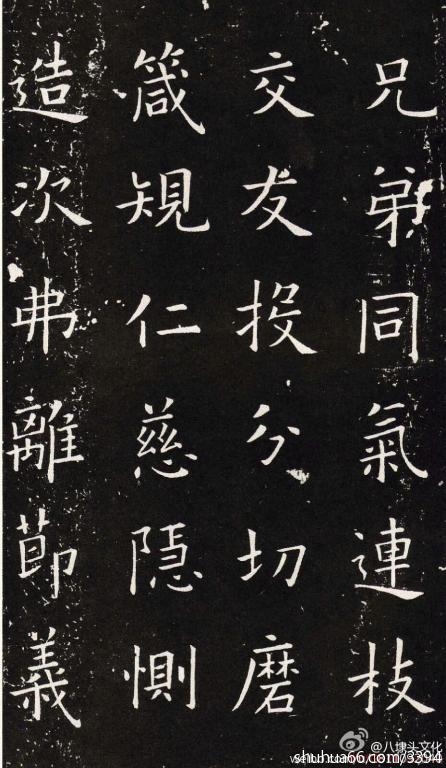 兄弟同氣連枝
交友投分切磨
箴規仁慈隱惻
造次弗離節義
@八埭头文化
shuhua66.com/3394